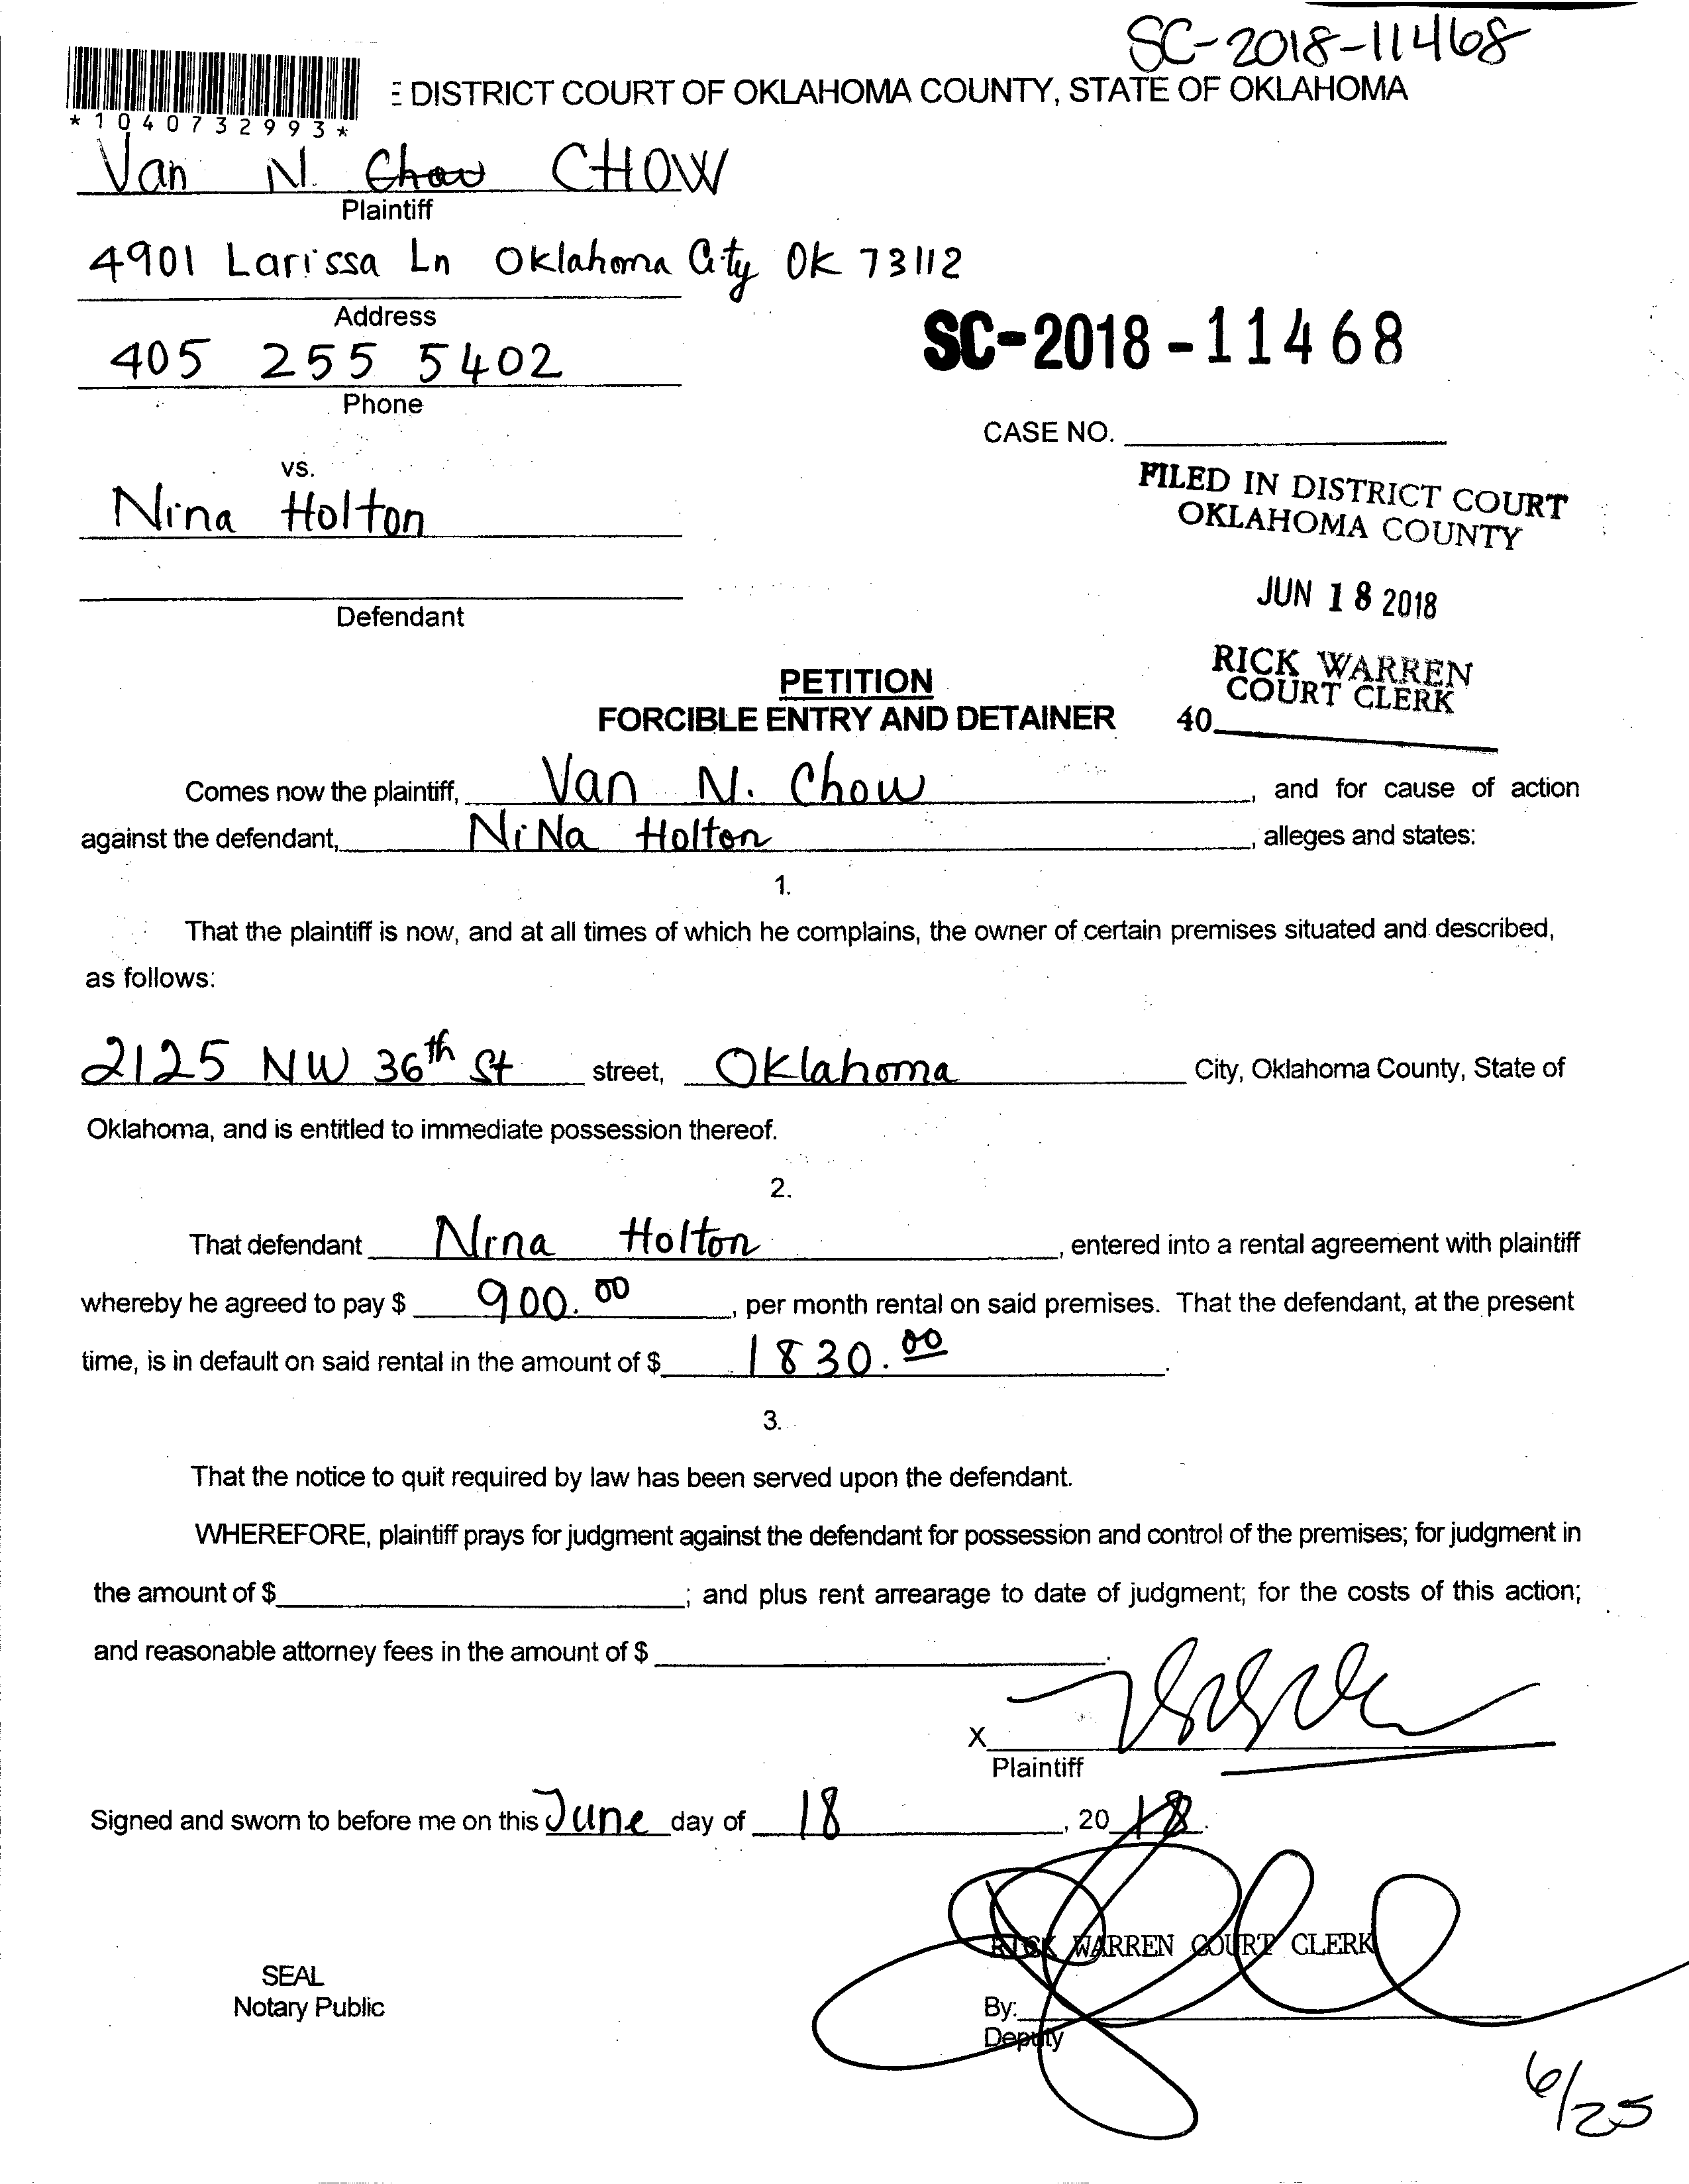 SC-2018-11468
DISTRICT COURT OF OKLAHOMA COUNTY, STATE OF OKLAHOMA
*1040732993*
Van N. Chow CHOW
Plaintiff
4901 Larissa Ln Oklahoma City OK 73112
Address
SC-2018-11468
405 255 5402
Phone
CASE NO.
vs.
FILED IN DISTRICT COURT
OKLAHOMA COUNTY
Nina Holton
JUN 18 2018
Defendant
RICK WARREN
COURT CLERK
PETITION
FORCIBLE ENTRY AND DETAINER 40
Comes now the plaintiff, Van N. Chow, and for cause of action
against the defendant, NiNa Holton, alleges and states:
1.
That the plaintiff is now, and at all times of which he complains, the owner of certain premises situated and described,
as follows:
2125 NW 36th St street, Oklahoma City, Oklahoma County, State of
Oklahoma, and is entitled to immediate possession thereof.
2.
That defendant Nina Holton, entered into a rental agreement with plaintiff
whereby he agreed to pay $ 900.00, per month rental on said premises. That the defendant, at the present
time, is in default on said rental in the amount of $ 1830.00.
3.
That the notice to quit required by law has been served upon the defendant.
WHEREFORE, plaintiff prays for judgment against the defendant for possession and control of the premises; for judgment in
the amount of $ ; and plus rent arrearage to date of judgment; for the costs of this action;
and reasonable attorney fees in the amount of $ .
X
Plaintiff
Signed and sworn to before me on this June day of 18, 2018.
RICK WARREN COURT CLERK
SEAL
Notary Public
By:
Deputy
6/25